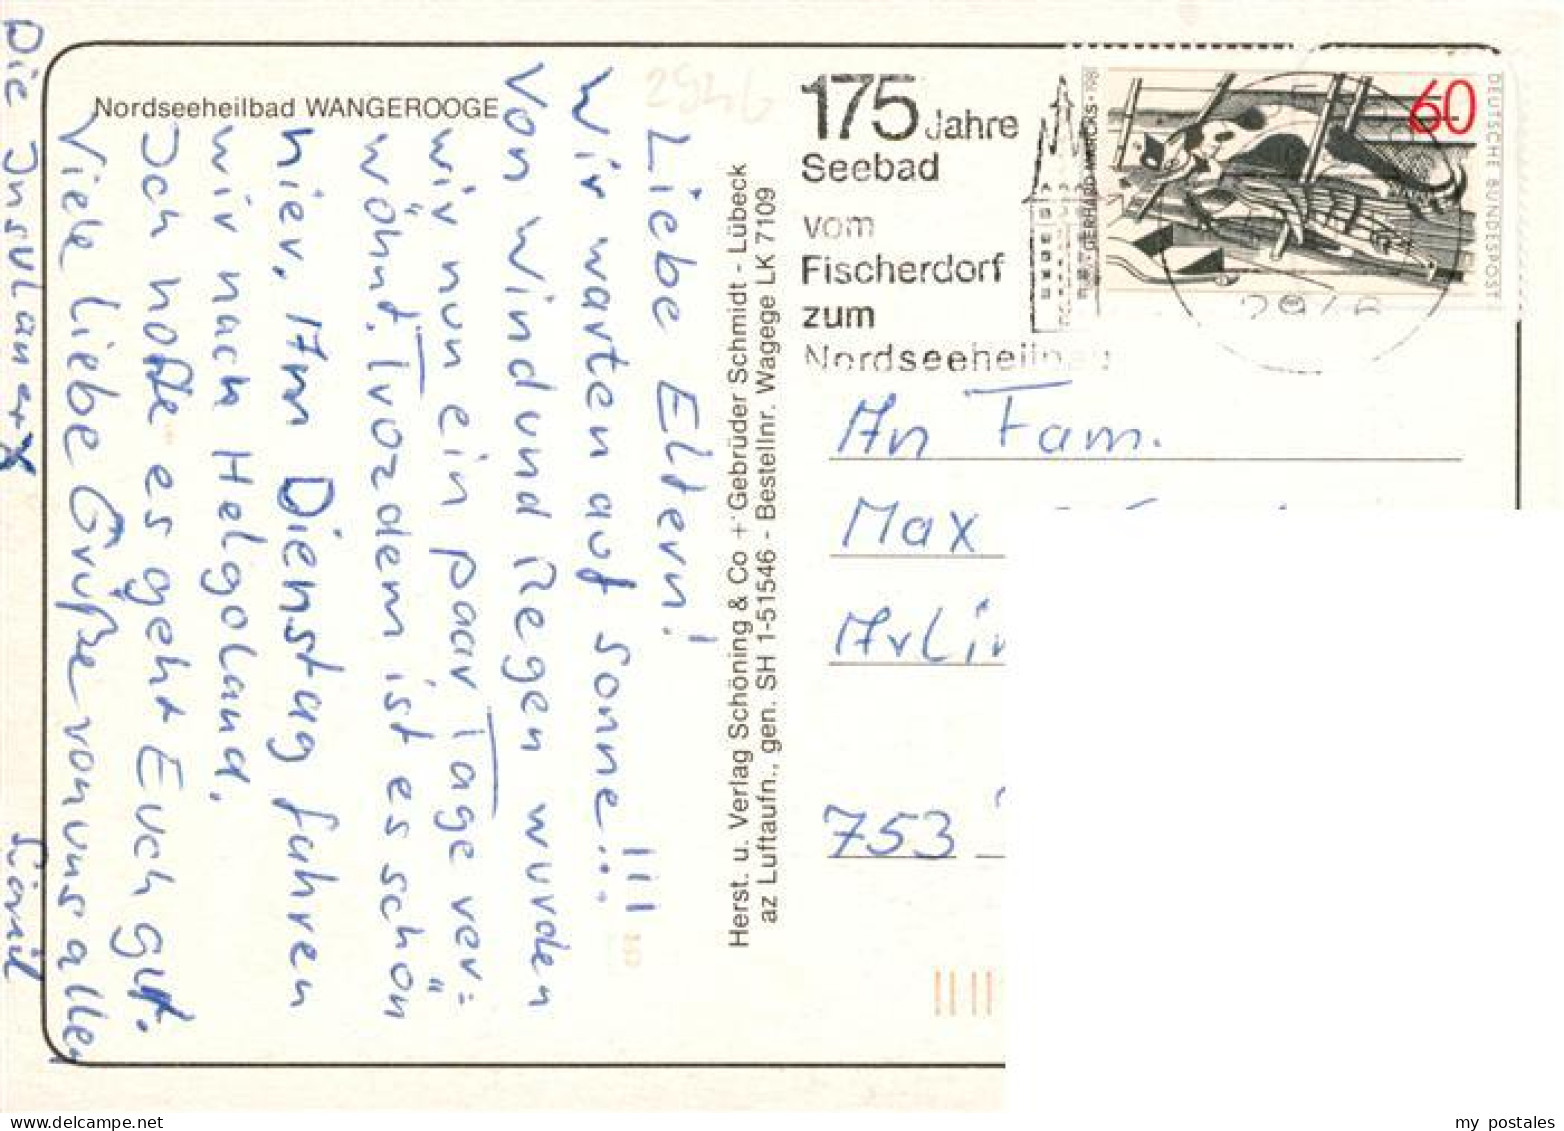 Nordseeheilbad WANGEROOGE
2946
Liebe Eltern!
Wir warten auf Sonne...!!!
Von Wind und Regen wurden
wir nun ein paar Tage ver=
wöhnt. Trozdem ist es schön
hier. Am Dienstag fahren
wir nach Helgoland.
Ich hoffe es geht Euch gut.
Viele liebe Grüße von uns allen
Die Insulaner X
Herst. u. Verlag Schöning & Co + Gebrüder Schmidt - Lübeck
az Luftaufn., gen. SH 1-51546 - Bestellnr. Wagege LK 7109
175 Jahre
Seebad
vom
Fischerdorf
zum
Nordseeheilbad
2946
60
DEUTSCHE BUNDESPOST
GERHARD MARCKS · 1981
An Fam.
Max
Arlin
753
my postales